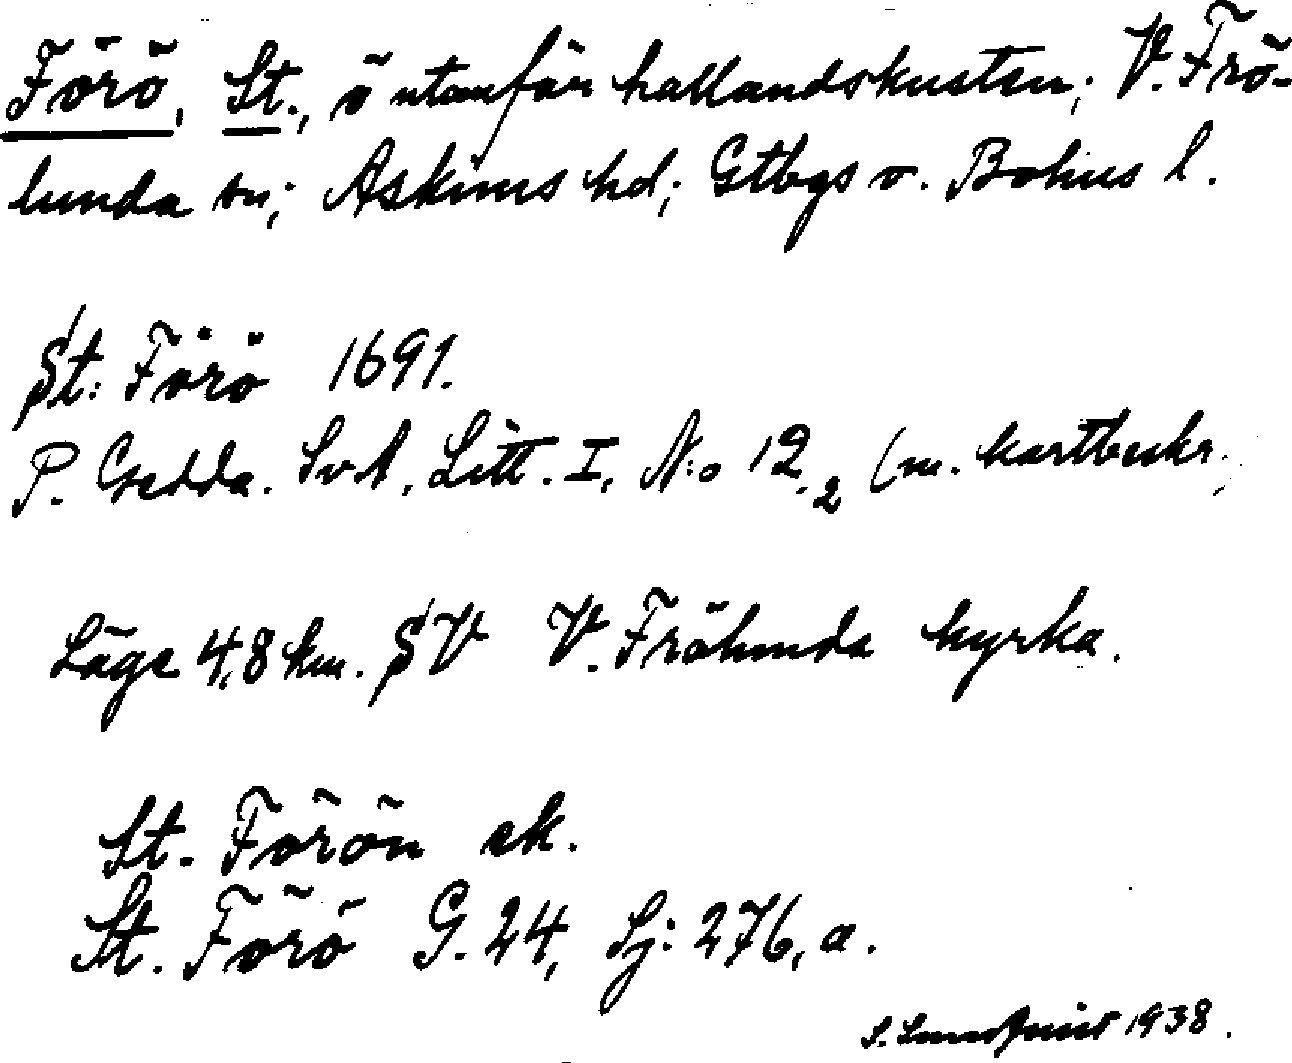 Förö, St., ö utanför hallandskusten; V. Frö-
lunda sn; Askims hd; Gtbgs o. Bohus l.
St: Förö 1691.
P. Gedda. SvA, Litt. I, N:o 12,2 (m. kartbeskr.)
Läge 4,8 km. SV V. Frölunda kyrka.
St. Förön ek.
St. Förö G. 24, Sj: 276, a.
S. 1938.